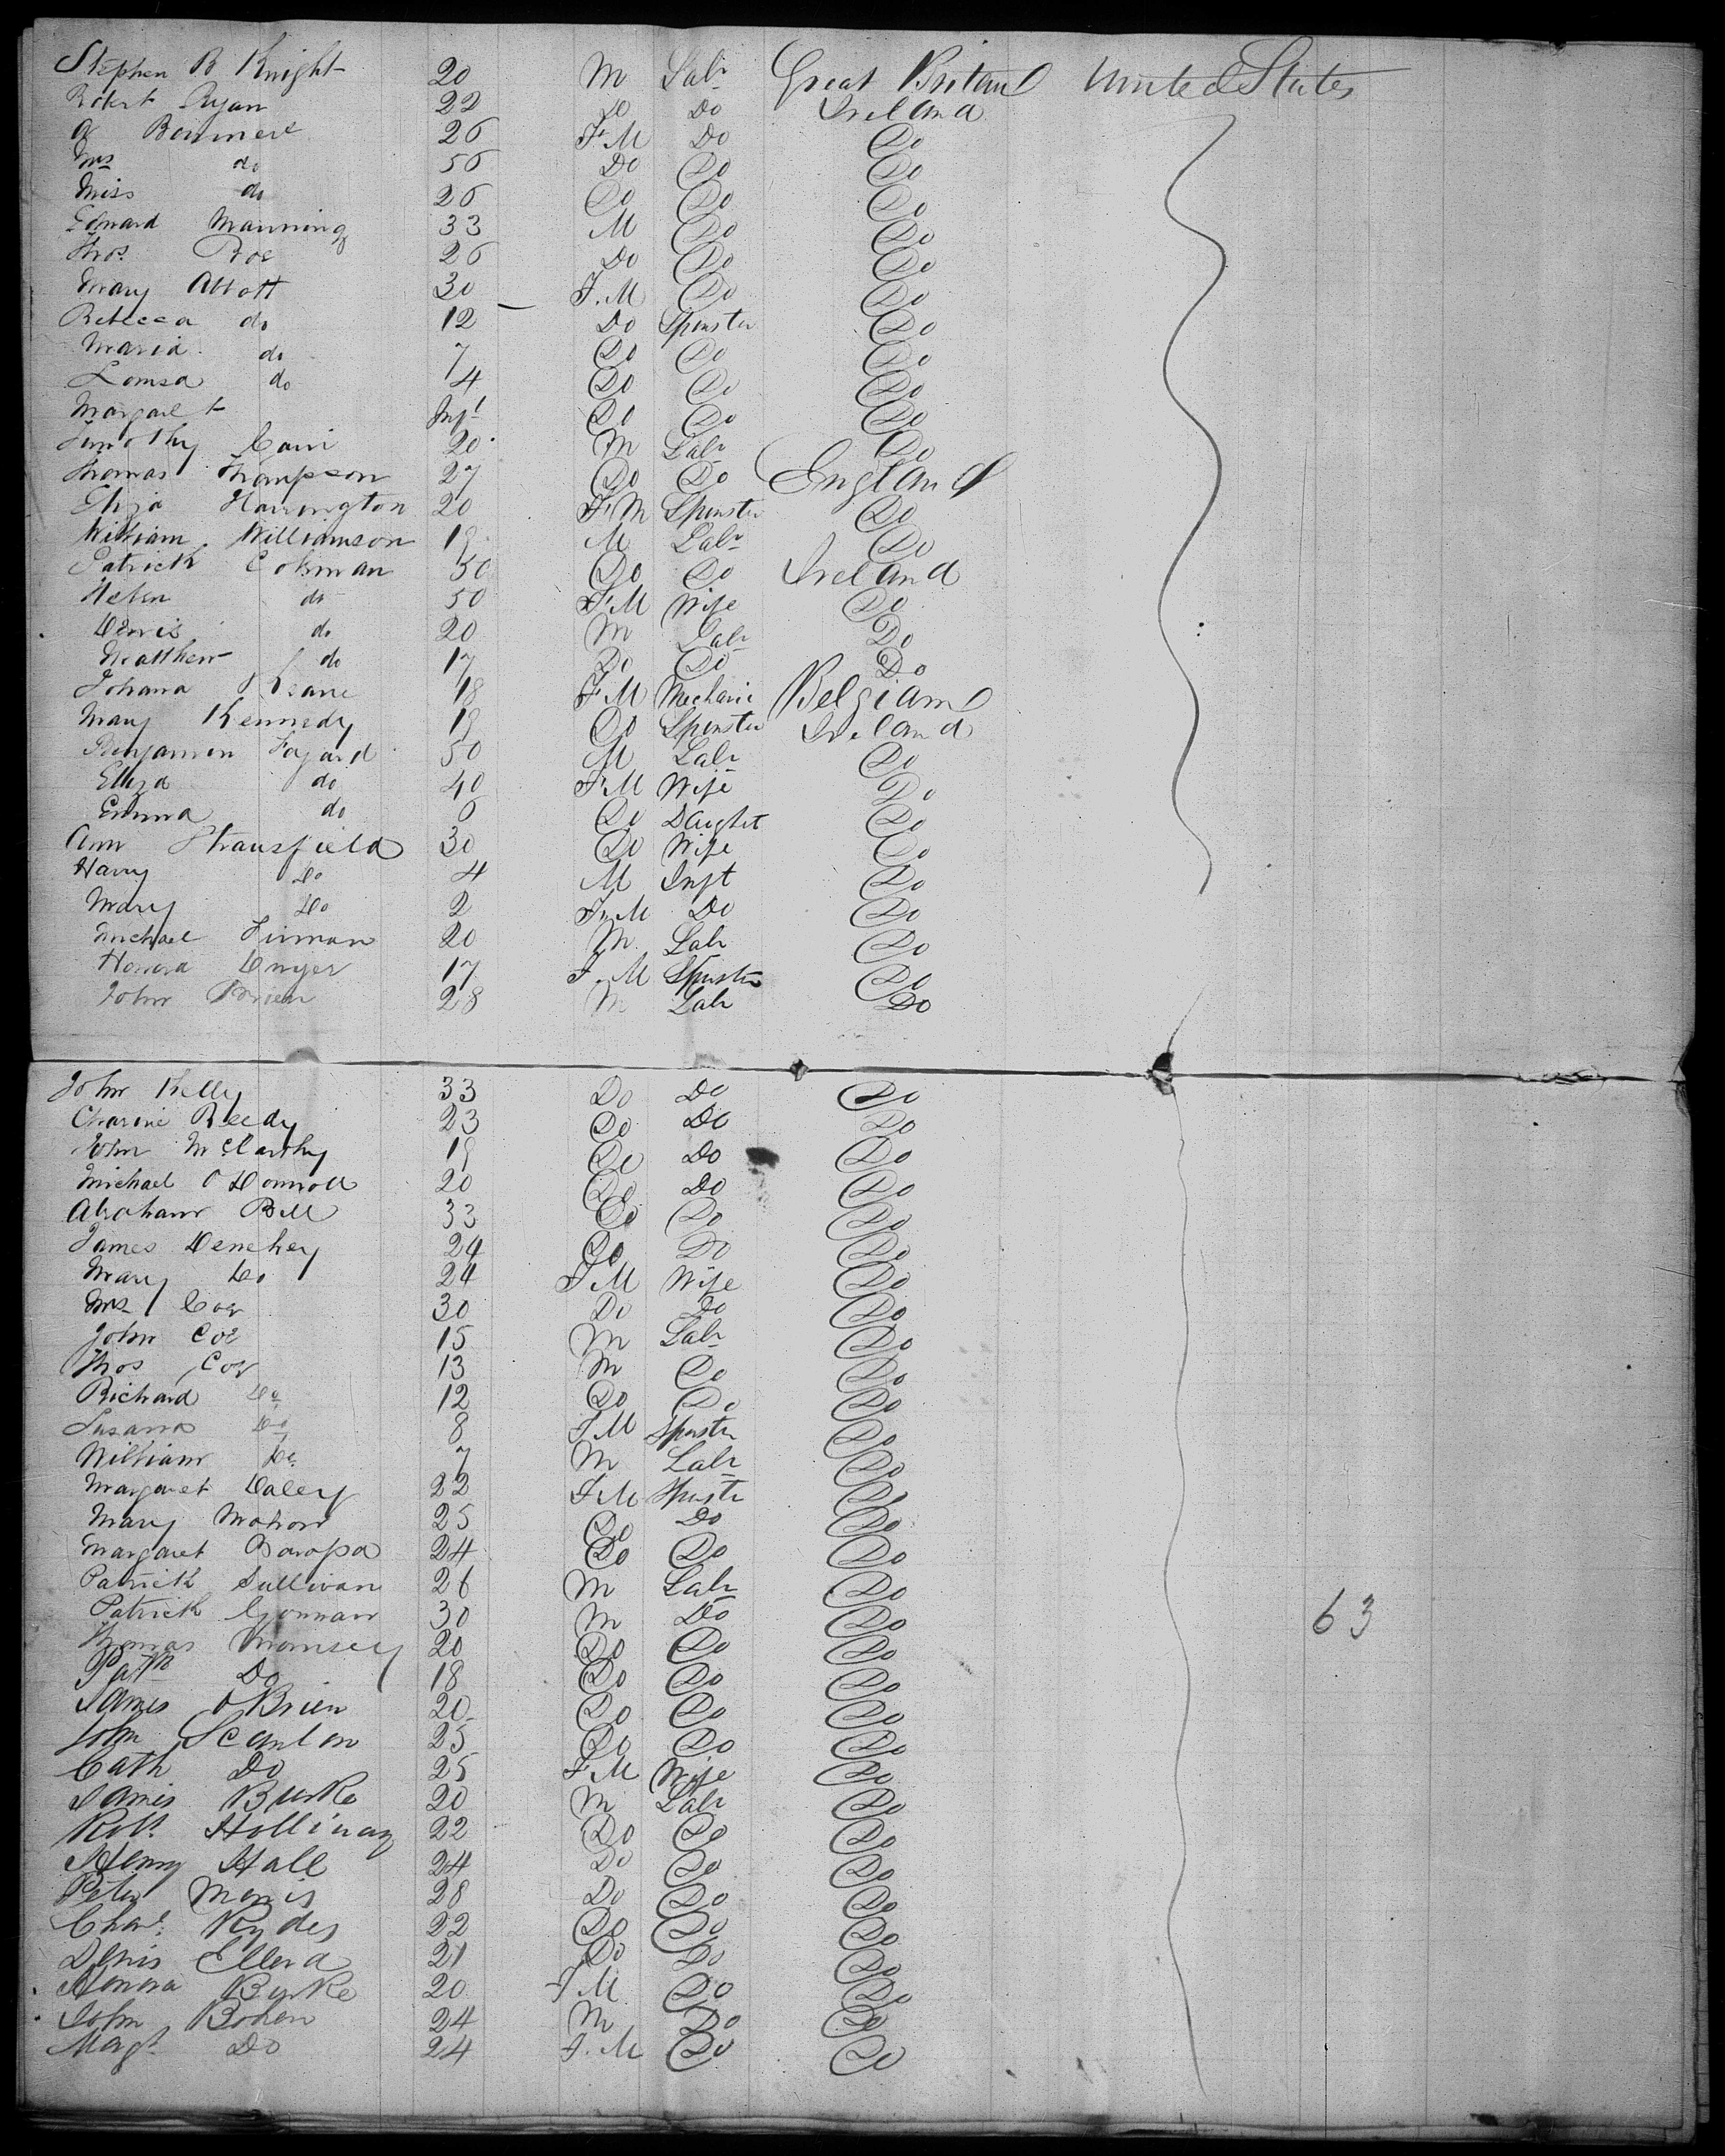 Stephen B Knight 20 M Labr Great Britain United States
Robert Ryan 22 Do Do Ireland
A Bommer 26 F.M Do Do
Mrs do 56 Do Do Do
Miss do 26 Do Do Do
Edward Manning 33 M Do Do
Thos. Roe 26 Do Do Do
Mary Abbott 30 F.M Do Do
Rebecca do 12 Do Spinster Do
Maria do 7 Do Do Do
Louisa do 4 Do Do Do
Margaret Inft Do Do Do
Timothy Cain 20 M Labr Do
Thomas Thompson 27 Do Do England
Eliza Harrington 20 F.M Spinster Do
William Williamson 19 M Labr Do
Patrick Colman 50 Do Do Ireland
Helen do 50 F.M Wife Do
Denis do 20 M Labr Do
Matthew do 17 Do Do Do
Johana Keane 18 F M Mechanic Belgium
Mary Kennedy 19 Do Spinster Ireland
Benjamin Fogard 50 M Labr Do
Eliza do 40 F.M Wife Do
Emma do 6 Do Daught Do
Ann Stransfield 30 Do Wife Do
Harry Do 4 M Inft Do
Mary Do 2 F.M Do Do
Michael 20 M. Labr Do
Honora Dwyer 17 F.M Spinster Do
John Brien 28 M Labr Do
John Kelly 33 Do Do Do
Reedy 23 Do Do Do
John McCarthy 19 Do Do Do
Michael O Donnell 20 Do Do Do
Abraham Bell 33 Do Do Do
James Denehey 24 Do Do Do
Mary Do 24 F M Wife Do
Mrs Coe 30 Do Do Do
John Coe 15 M Labr Do
Thos Coe 13 M Do Do
Richard Do 12 Do Do Do
Susana Do 8 F M Spinstr Do
William Do 7 M Labr Do
Margaret Daley 22 F M Spinstr Do
Mary Mahon 25 Do Do Do
Margaret 24 Do Do Do
Patrick Sullivan 26 M Labr Do
Patrick Gorman 30 M Do Do 63
Thomas 20 Do Do Do
Patk Do 18 Do Do Do
James O Brien 20 Do Do Do
John Scanlon 25 Do Do Do
Cath Do 25 F M Wife Do
James Burke 20 M Labr Do
Robt Holliway 22 Do Do Do
Henry Hall 24 Do Do Do
Peter Morris 28 Do Do Do
Chas. Ryder 22 Do Do Do
Denis Ellerd 21 Do Do Do
Honora Burke 20 F M Do Do
John Bohen 24 M Do Do
Magt. Do 24 F.M Do Do